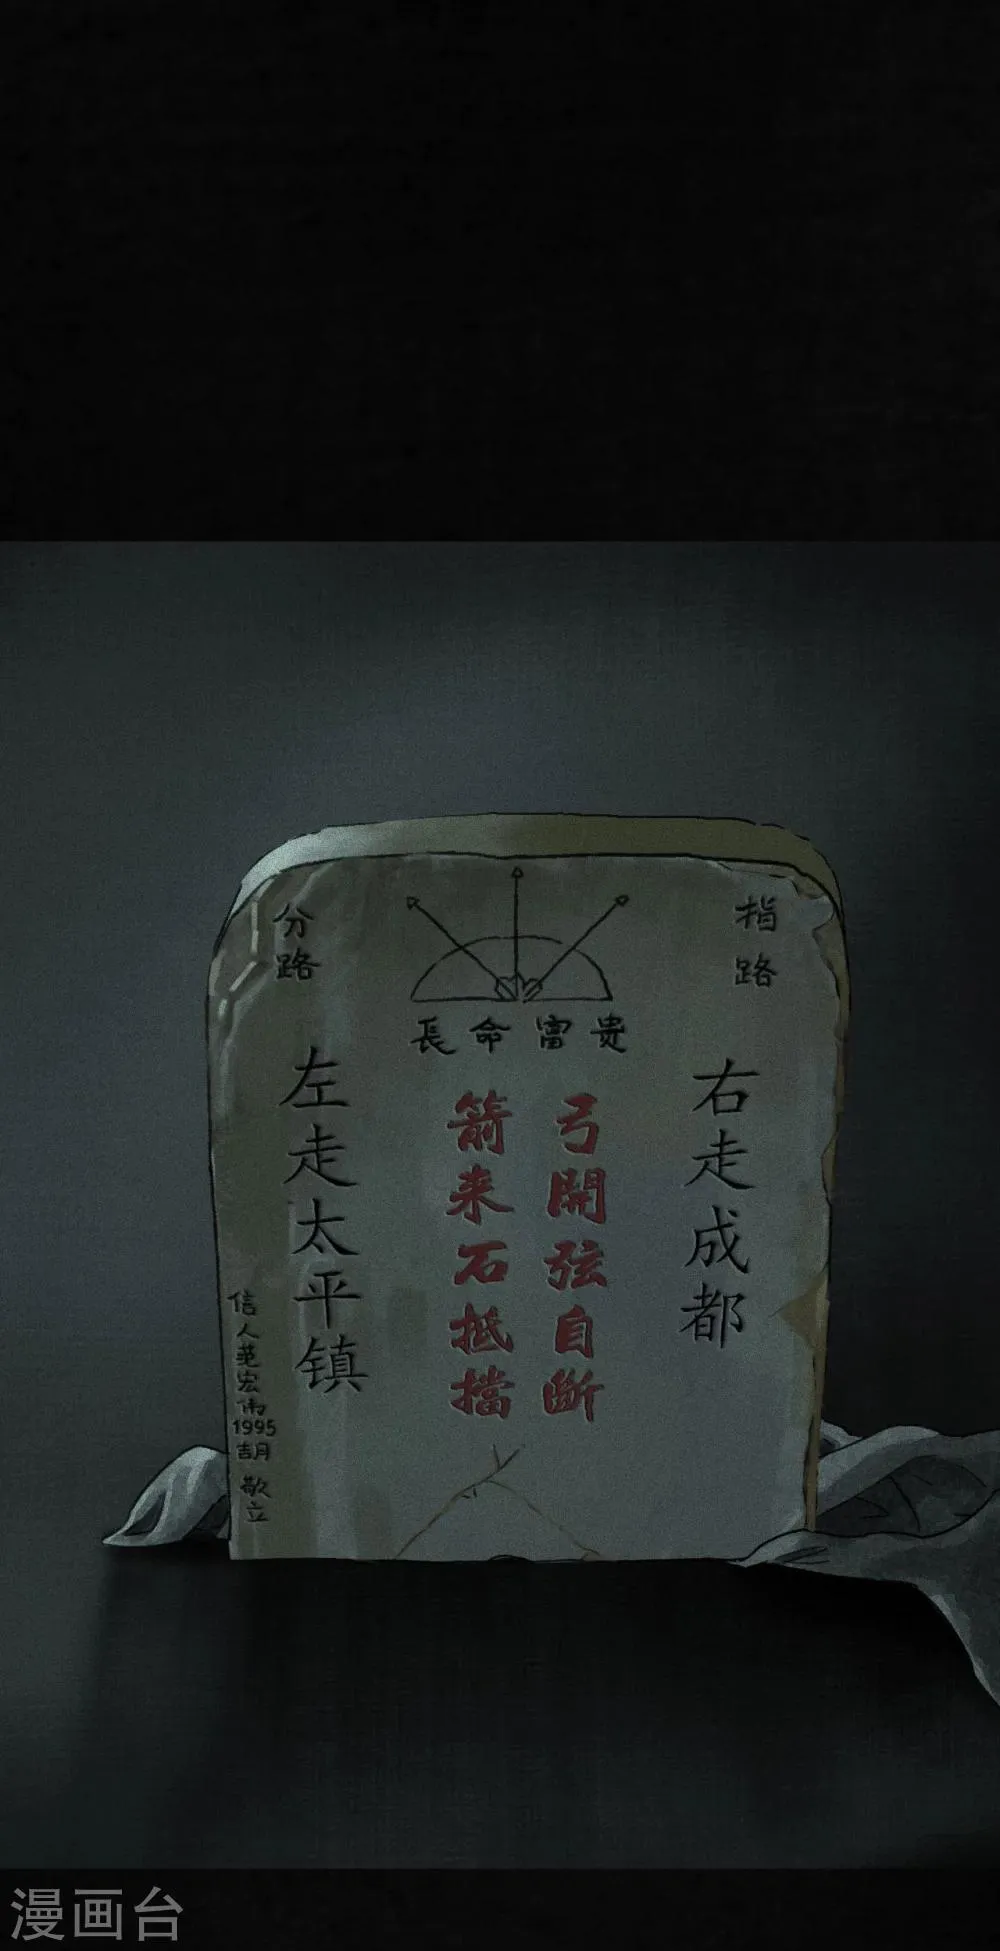 指路
分路
長命富贵
右走成都
弓開弦自斷
箭来石抵擋
左走太平镇
信人范宏伟1995吉月 敬立
漫画台